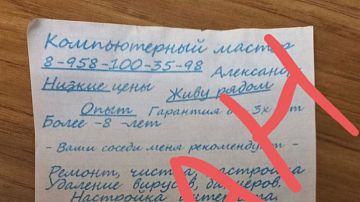 Компьютерный мастер
8-958-100-35-98
Александр
Низкие цены Живу рядом
Опыт Гарантия от 3х лет
Более -8 -лет
- Ваши соседи меня рекомендуют -
Ремонт, чистка, настройка
Удаление вирусов, баннеров.
Настройка интернета.